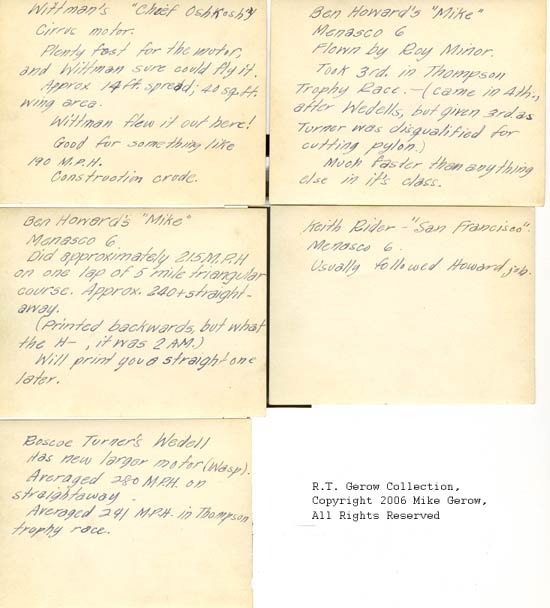 Wittman's "Chief OshKosh"
Cirrus motor.
Plenty fast for the motor,
and Wittman sure could fly it.
Approx 14 ft. spread; 40 sq. ft.
wing area.
Wittman flew it out here!
Good for something like
190 M.P.H.
Construction crude.
Ben Howard's "Mike"
Menasco 6
Flown by Roy Minor.
Took 3rd. in Thompson
Trophy Race. - (came in 4th.,
after Wedells, but given 3rd. as
Turner was disqualified for
cutting pylon.)
Much faster than anything
else in it's class.
Ben Howard's "Mike"
Menasco 6.
Did approximately 215 M.P.H
on one lap of 5 mile triangular
course. Approx. 240+ straight-
away.
(Printed backwards, but what
the H- , it was 2 AM.)
Will print you a straight one
later.
Keith Rider - "San Francisco".
Menasco 6.
Usually followed Howard job.
Roscoe Turner's Wedell
Has new larger motor (Wasp).
Averaged 280 M.P.H. on
straightaway.
Averaged 241 M.P.H. in Thompson
trophy race.
R.T. Gerow Collection,
Copyright 2006 Mike Gerow,
All Rights Reserved